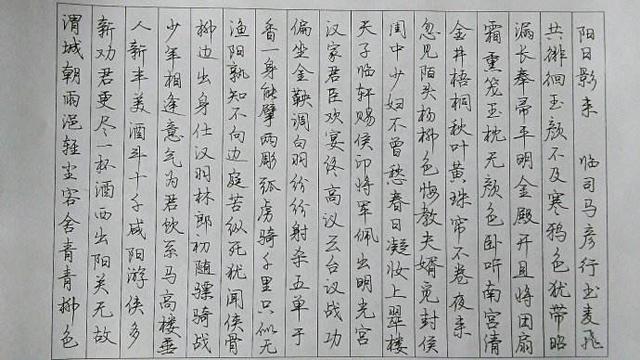 渭城朝雨浥轻尘客舍青青柳色
新劝君更尽一杯酒西出阳关无故
人新丰美酒斗十千咸阳游侠多
少年相逢意气为君饮系马高楼垂
柳边出身仕汉羽林郎初随骠骑战
渔阳孰知不向边庭苦纵死犹闻侠骨
香一身能擘两彫弧虏骑千里只似无
偏坐金鞍调白羽纷纷射杀五单于
汉家君臣欢宴终高议云台议战功
天子临轩赐侯印将军佩出明光宫
闺中少妇不曾愁春日凝妆上翠楼
忽见陌头杨柳色悔教夫婿觅封侯
金井梧桐秋叶黄珠帘不卷夜来
霜熏笼玉枕无颜色卧听南宫清
漏长奉帚平明金殿开且将团扇
共徘徊玉颜不及寒鸦色犹带昭
阳日影来 临司马彦行书麦飞